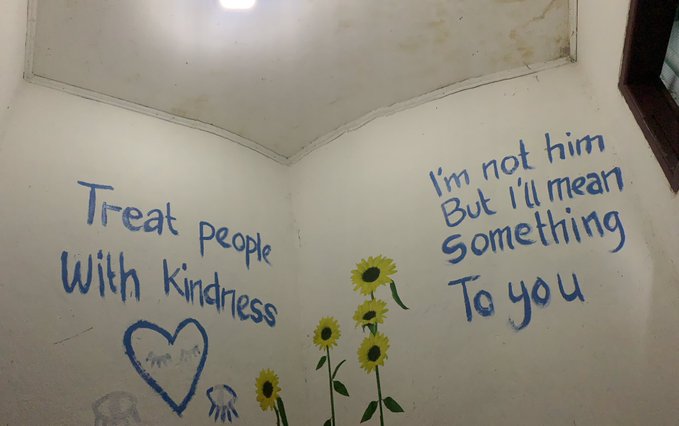 Treat people
With kindness
I'm not him
But I'll mean
Something
To you